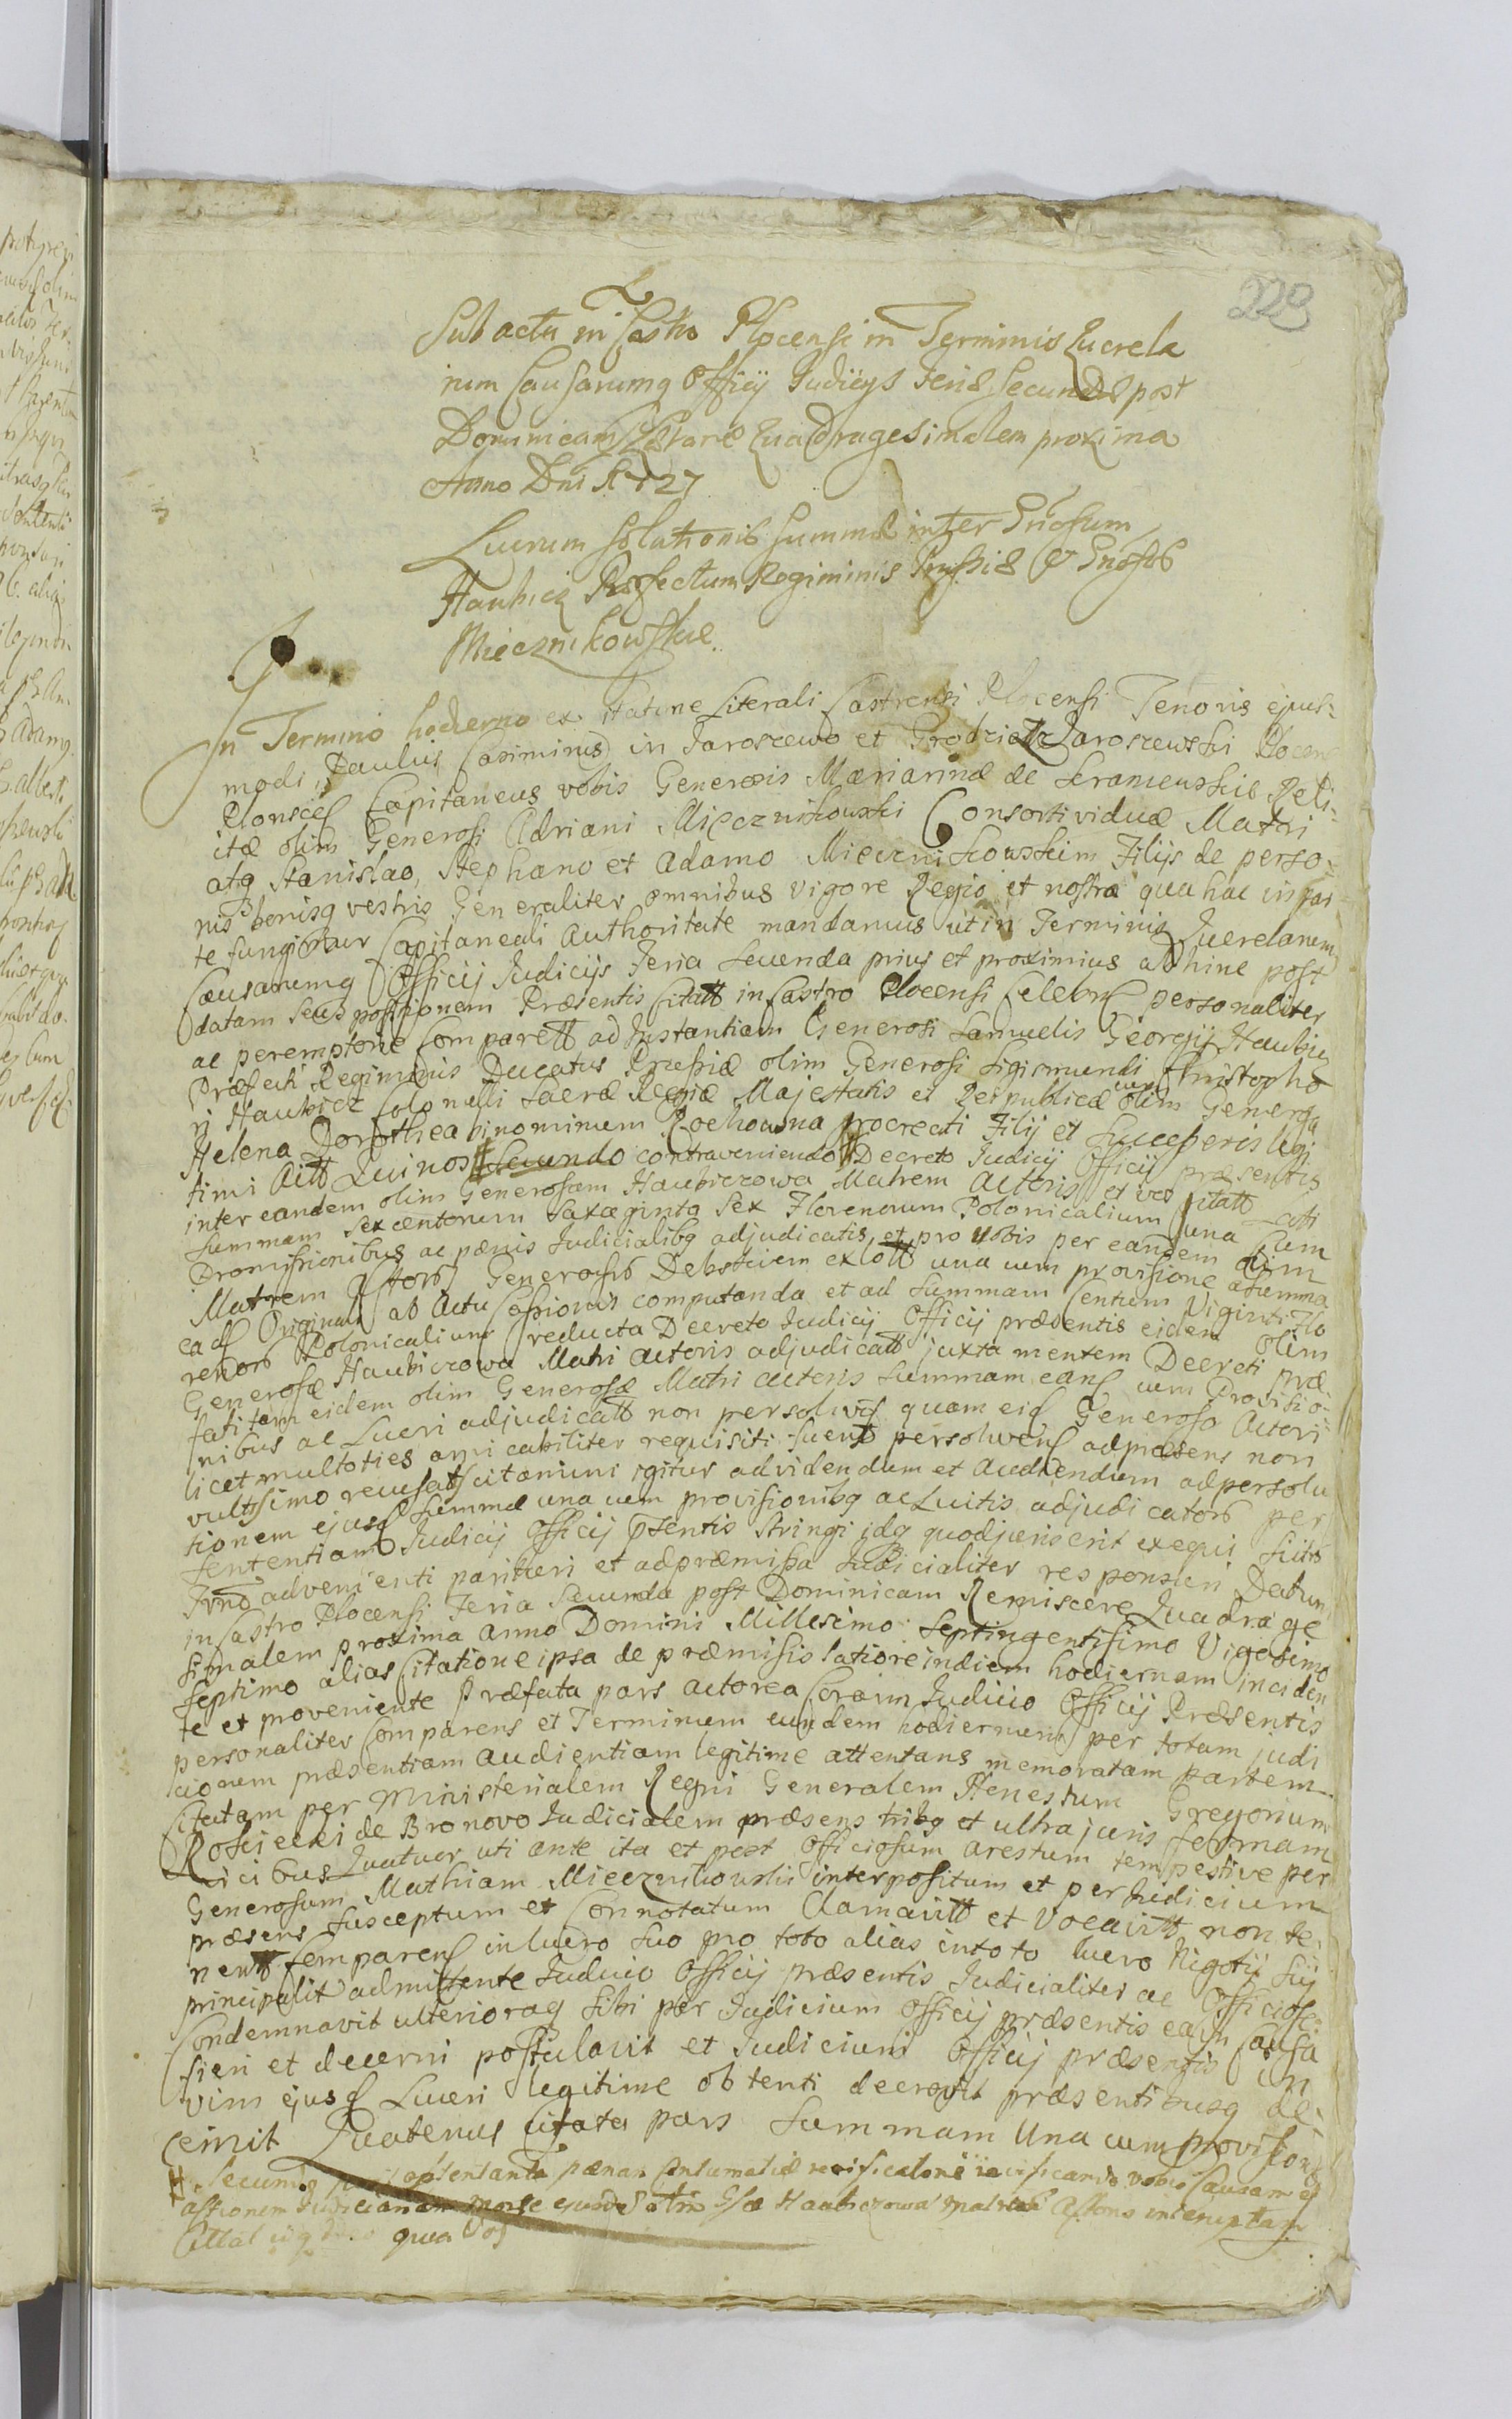 229
Sub actu in Castro Plocensi in Terminis Querela
rum Causarumq Officij Judicijs Feria Secunda post
Dominicam Lætare Quadragesimalem proxima
Anno Dni 1727
Lucrum Solutionis Summæ inter Gnosum
Haubicz Præfectum Regiminis Prussiæ & Gnosos
Miecznikowskie
In Termino hodierno ex Citatione Literali Castrensi Plocensi Tenoris ejus-
modi, Paulus Casimirus in Jaroszewo et Grodziec Jaroszewski Plocens
Plonsceñ Capitaneus vobis Generosis Mariannæ de Reli-
ctæ olim Generosi Adriani Miecznikowski Consorti viduæ Matri
atq Stanislao, Stephano et Adamo Miecznikowskim Filijs de perso-
nis bonisq vestris Generaliter omnibus vigore Regio et nostra qua hac in par-
te fungimur Capitaneali Authoritate mandamus ut in Terminis Querelarum
Causarumq Officij Judicijs Feria Secunda prius et proximius abhinc post
datam seu positionem Præsentis Citatt in Castro Plocensi Celebrñ personaliter
ac peremptorie Comparett ad Instantiam Generosi Samuelis Georgij Haubicz
Præfecti Regiminis Ducatus Prussiæ olim Generosi Sigismundi Christopho
ri Haubicz Colonelli Sacræ Regiæ Majestatis et Reipublicæ cum olim Generosa
Helena Dorothea binominum procreati Filij et Successoris legi
timi Citt Qui vos Secundo contraveniendo Decreto Judicij Officij præsentis
inter eandem olim Generosam Haubiczowa Matrem Actoris et vos Citatt Lati
Summam Sexcentorum Sexaginta Sex Florenorum Polonicalium una cum
Promissionibus ac pænis Judicialibq adjudicatis, et pro vobis per eandem olim
Matrem Actoris Generosis exlott una cum provisione a Summa
eadñ Originali ab Actu Cessionis computanda et ad Summam Centum Viginti Flo
renors Polonicalium reducta Decreto Judicij Officij præsentis eidem olim
Generosæ Haubiczowa Matri actoris adjudicatt juxta mentem Decreti præ
fati tam eidem olim Generosæ Matri actoris Summam eanñ cum Provisio-
nibus ac Lucri adjudicatt non persolvis quam eiñ Generoso Actori
licet multoties amicabiliter requisiti persolvere ad præsens non
vultis imo recusatis citamini igitur ad videndum et Audiendum ad persolu
tionem ejusñ Summæ una cum provisionibq ac Luitis adjudicators per
Sententiam Judicij Officij pñtentis Stringi idq quod juris erit exequi
advenienti parituri et ad præmissa Judicialiter responsuri Datum
in Castro Plocensi Feria Secunda post Dominicam Reminscere Quadrage
simalem proxima Anno Domini Millesimo Septingentisimo Vigesimo
Septimo alias Citatione ipsa de præmisis latiore in diem hodiernam inciden
te et proveniente Præfata pars actorea Coram Judicio Officij Præsentis
personaliter Comparens et Terminum eundem hodiernum per totam judi
ciorum præsentiam audientiam legitime attentans memoratam partem
Citatam per Ministerialem Regni Generalem Honestum Gregorium
Rościecki de Bronovo Judicialem præsens tribq et ultra juris formam
Vicibus Quatuor uti ante ita et post Officiosum arestum tempestive per
Generosum Mathiam Miecznikowski interpositum et per Judicium
præsens Susceptum et Connotatum Clamavitt et Vocavitt non te-
nent Comparenñ in lucro Suo pro toto alias in toto lucro Nigotij Sij
principalit admittente Judicio Officij præsentis Judicialiter ac Officiose
Condemnavit ulterioraq Sibi per Judicium Officij præsentis ea in Causa
fieri et decerni postulavit et Judicium Officij præsentis in
vim ejusñ Lucri legitime obtenti decrevit præsentibusq de-
cernit Quatenus Citata pars Summam Una cum provision
Secunis pænas Contumatiæ vobis Causam et
actionem Judiciariam morte Haubiczowa matris Actoris interruptam
qua vos